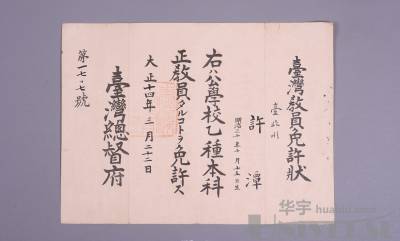 臺灣教員免許狀
臺北州
許潭
明治三十 年十月十五日生
右ハ公學校乙種本科
正教員タルコトヲ免許ス
大正十四年三月二十二日
臺灣總督府
第一七〃七號
华宇
huabid.com
UNIVERSAL